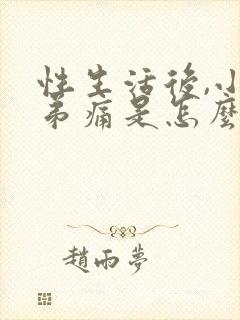 性生活後,小
弟痛是怎麼
趙雨夢